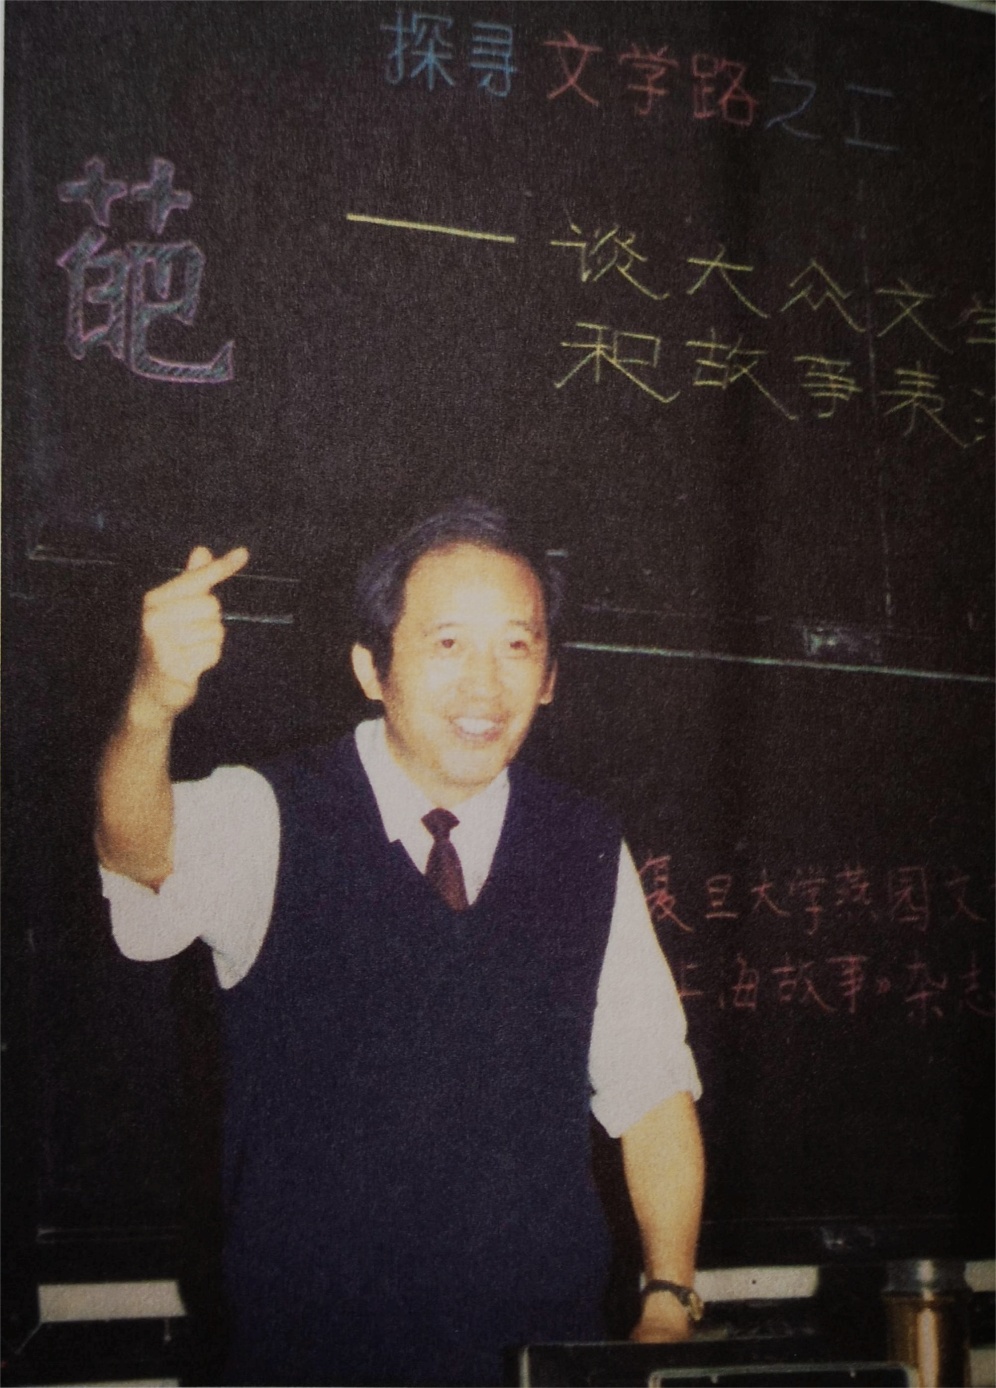 探寻文学路之二
葩
——谈大众文学
和故事表
复旦大学燕园文
上海故事》杂志